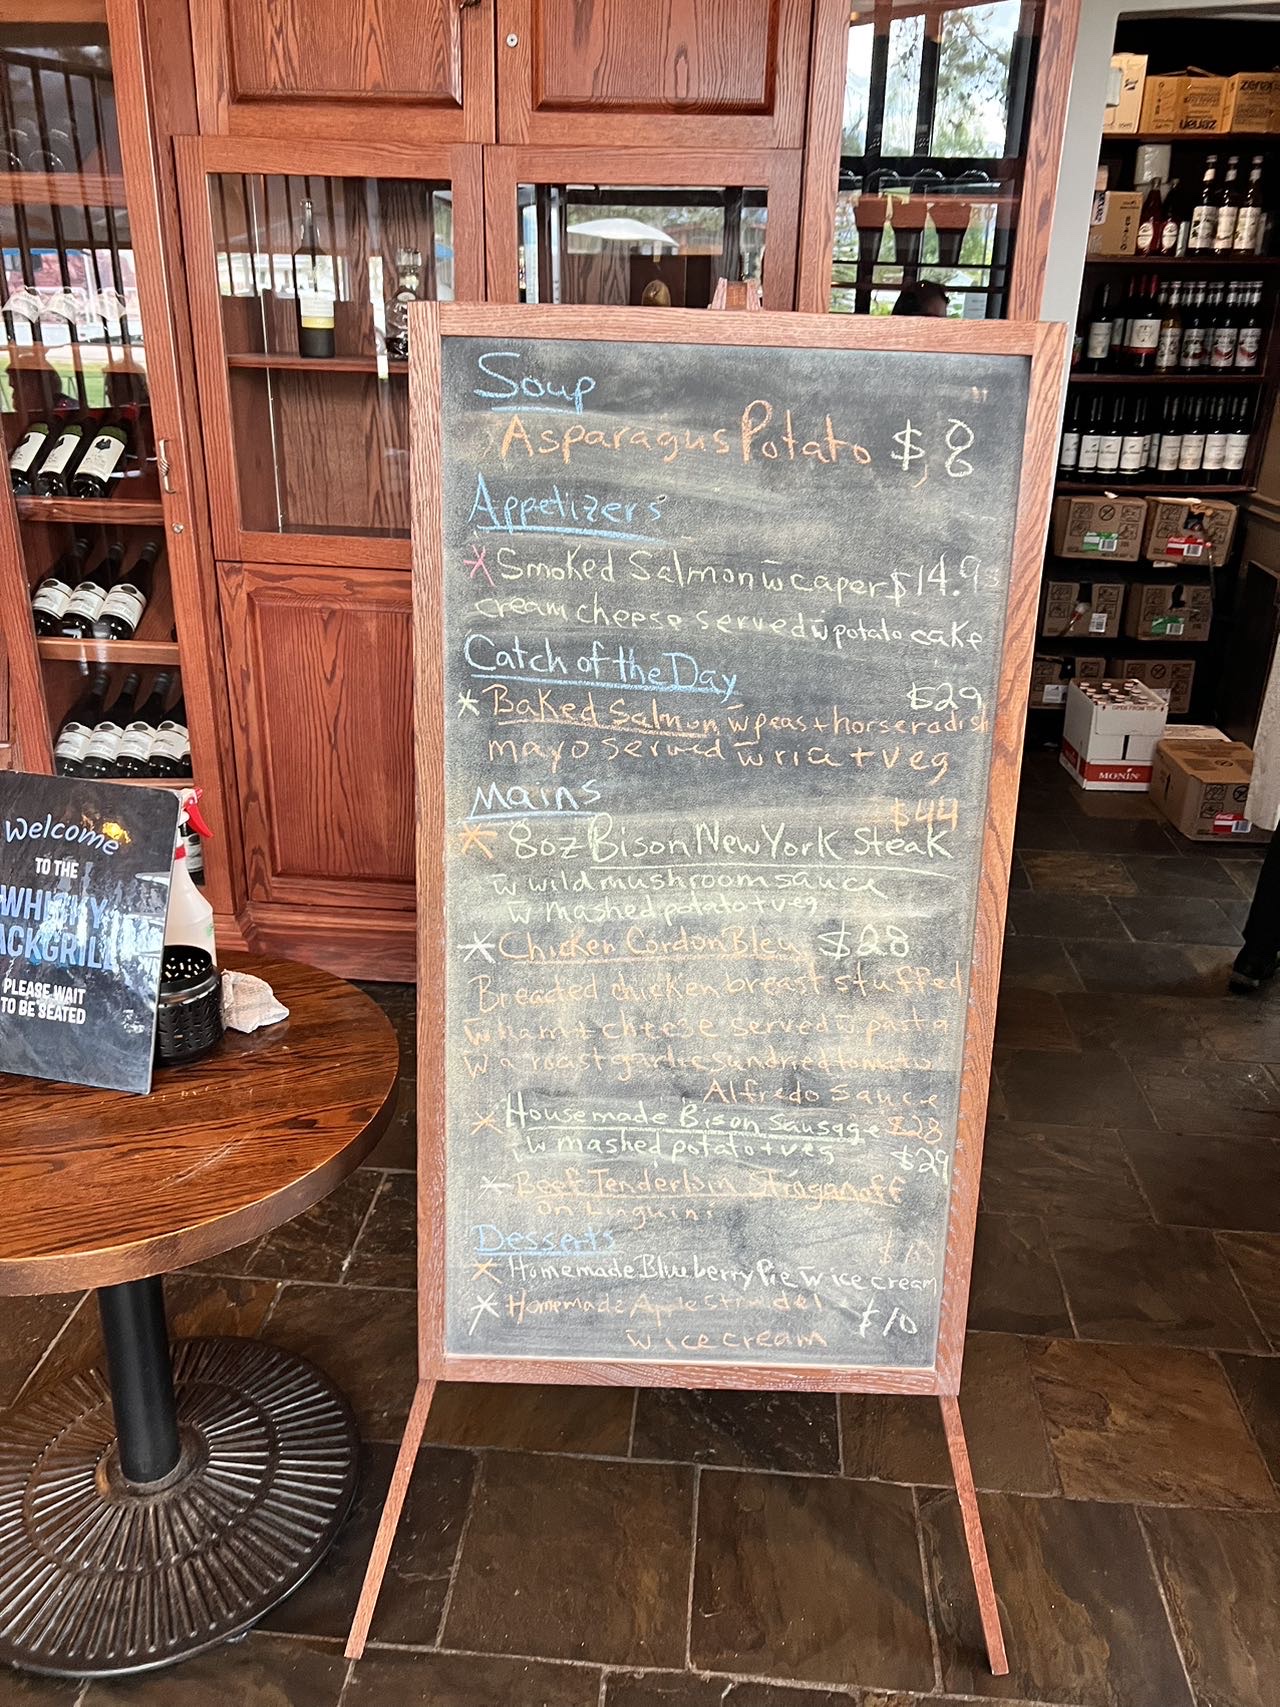 Soup
Asparagus Potato $8
Appetizers
* Smoked Salmon w caper $14.95
cream cheese served w potato cake
Catch of the Day
$29
* Baked Salmon w peas + horseradish
mayo served w rice + veg
Mains
$44
* 8oz Bison New York Steak
w wild mushroom sauce
w mashed potato + veg
* Chicken Cordon Bleu $28
Breaded chicken breast stuffed
w ham + cheese served w pasta
w a roast garlic sundried tomato
Alfredo Sauce
* Housemade Bison Sausage $28
w mashed potato + veg
$29
* Beef Tenderloin Stroganoff
on Linguini
Desserts
$10
* Homemade Blueberry Pie w ice cream
* Homemade Apple Strudel $10
w ice cream
Welcome
TO THE
WHISKY
ACKGRILL
PLEASE WAIT
TO BE SEATED
zenah
zenah
OPEN FROM TOP
MONIN